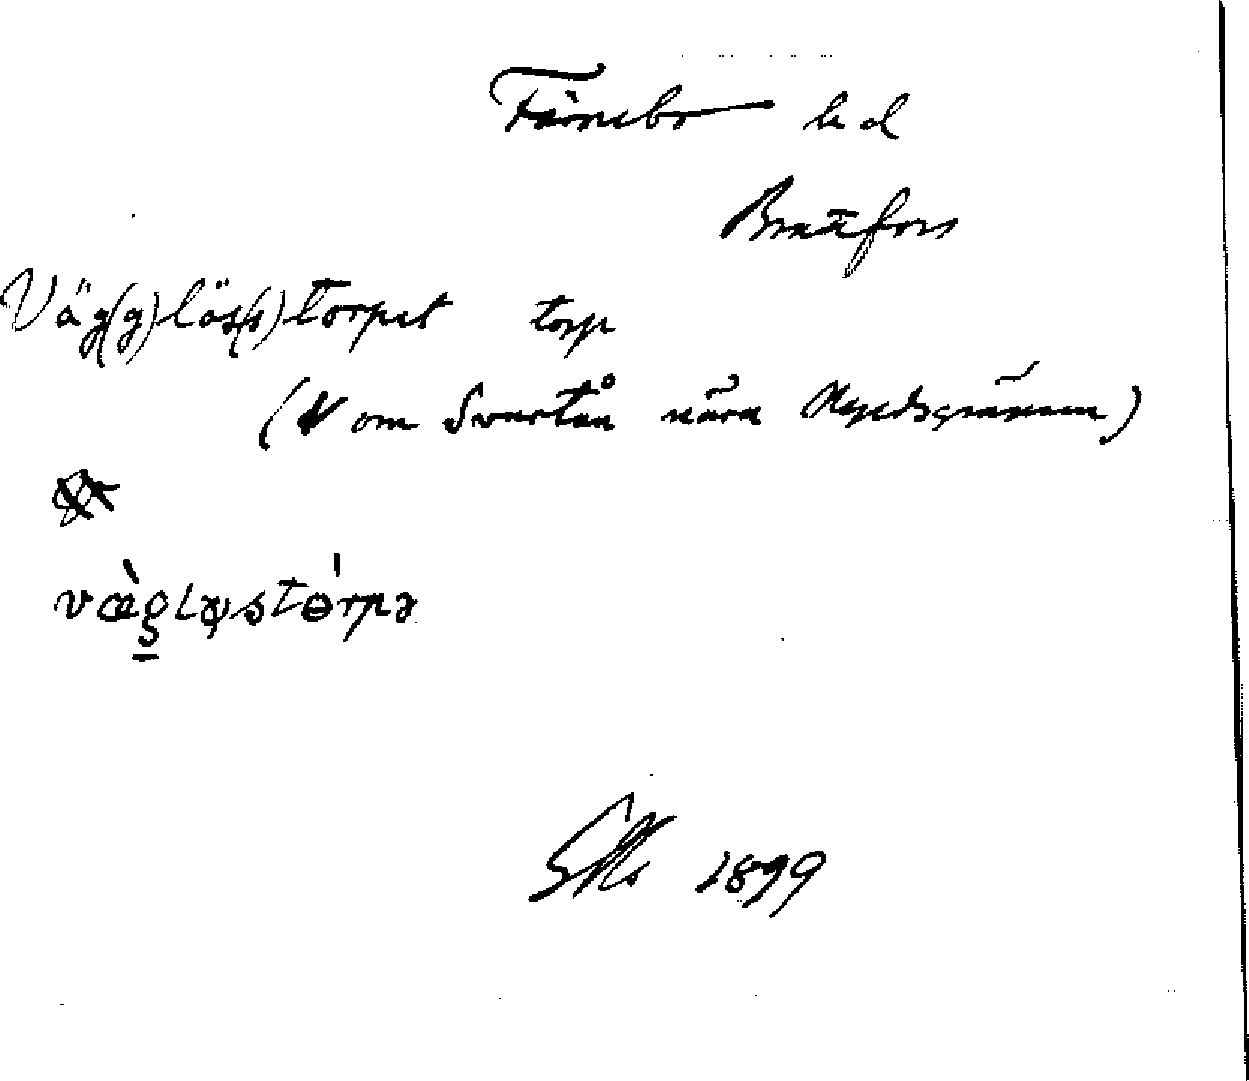 Färnebo hd
Brattfors
Väg(g)lös(s)torpet torp
(V om Svartån nära Nyedsgränsen)
væ̀g̱løstɵ́rpə
1899